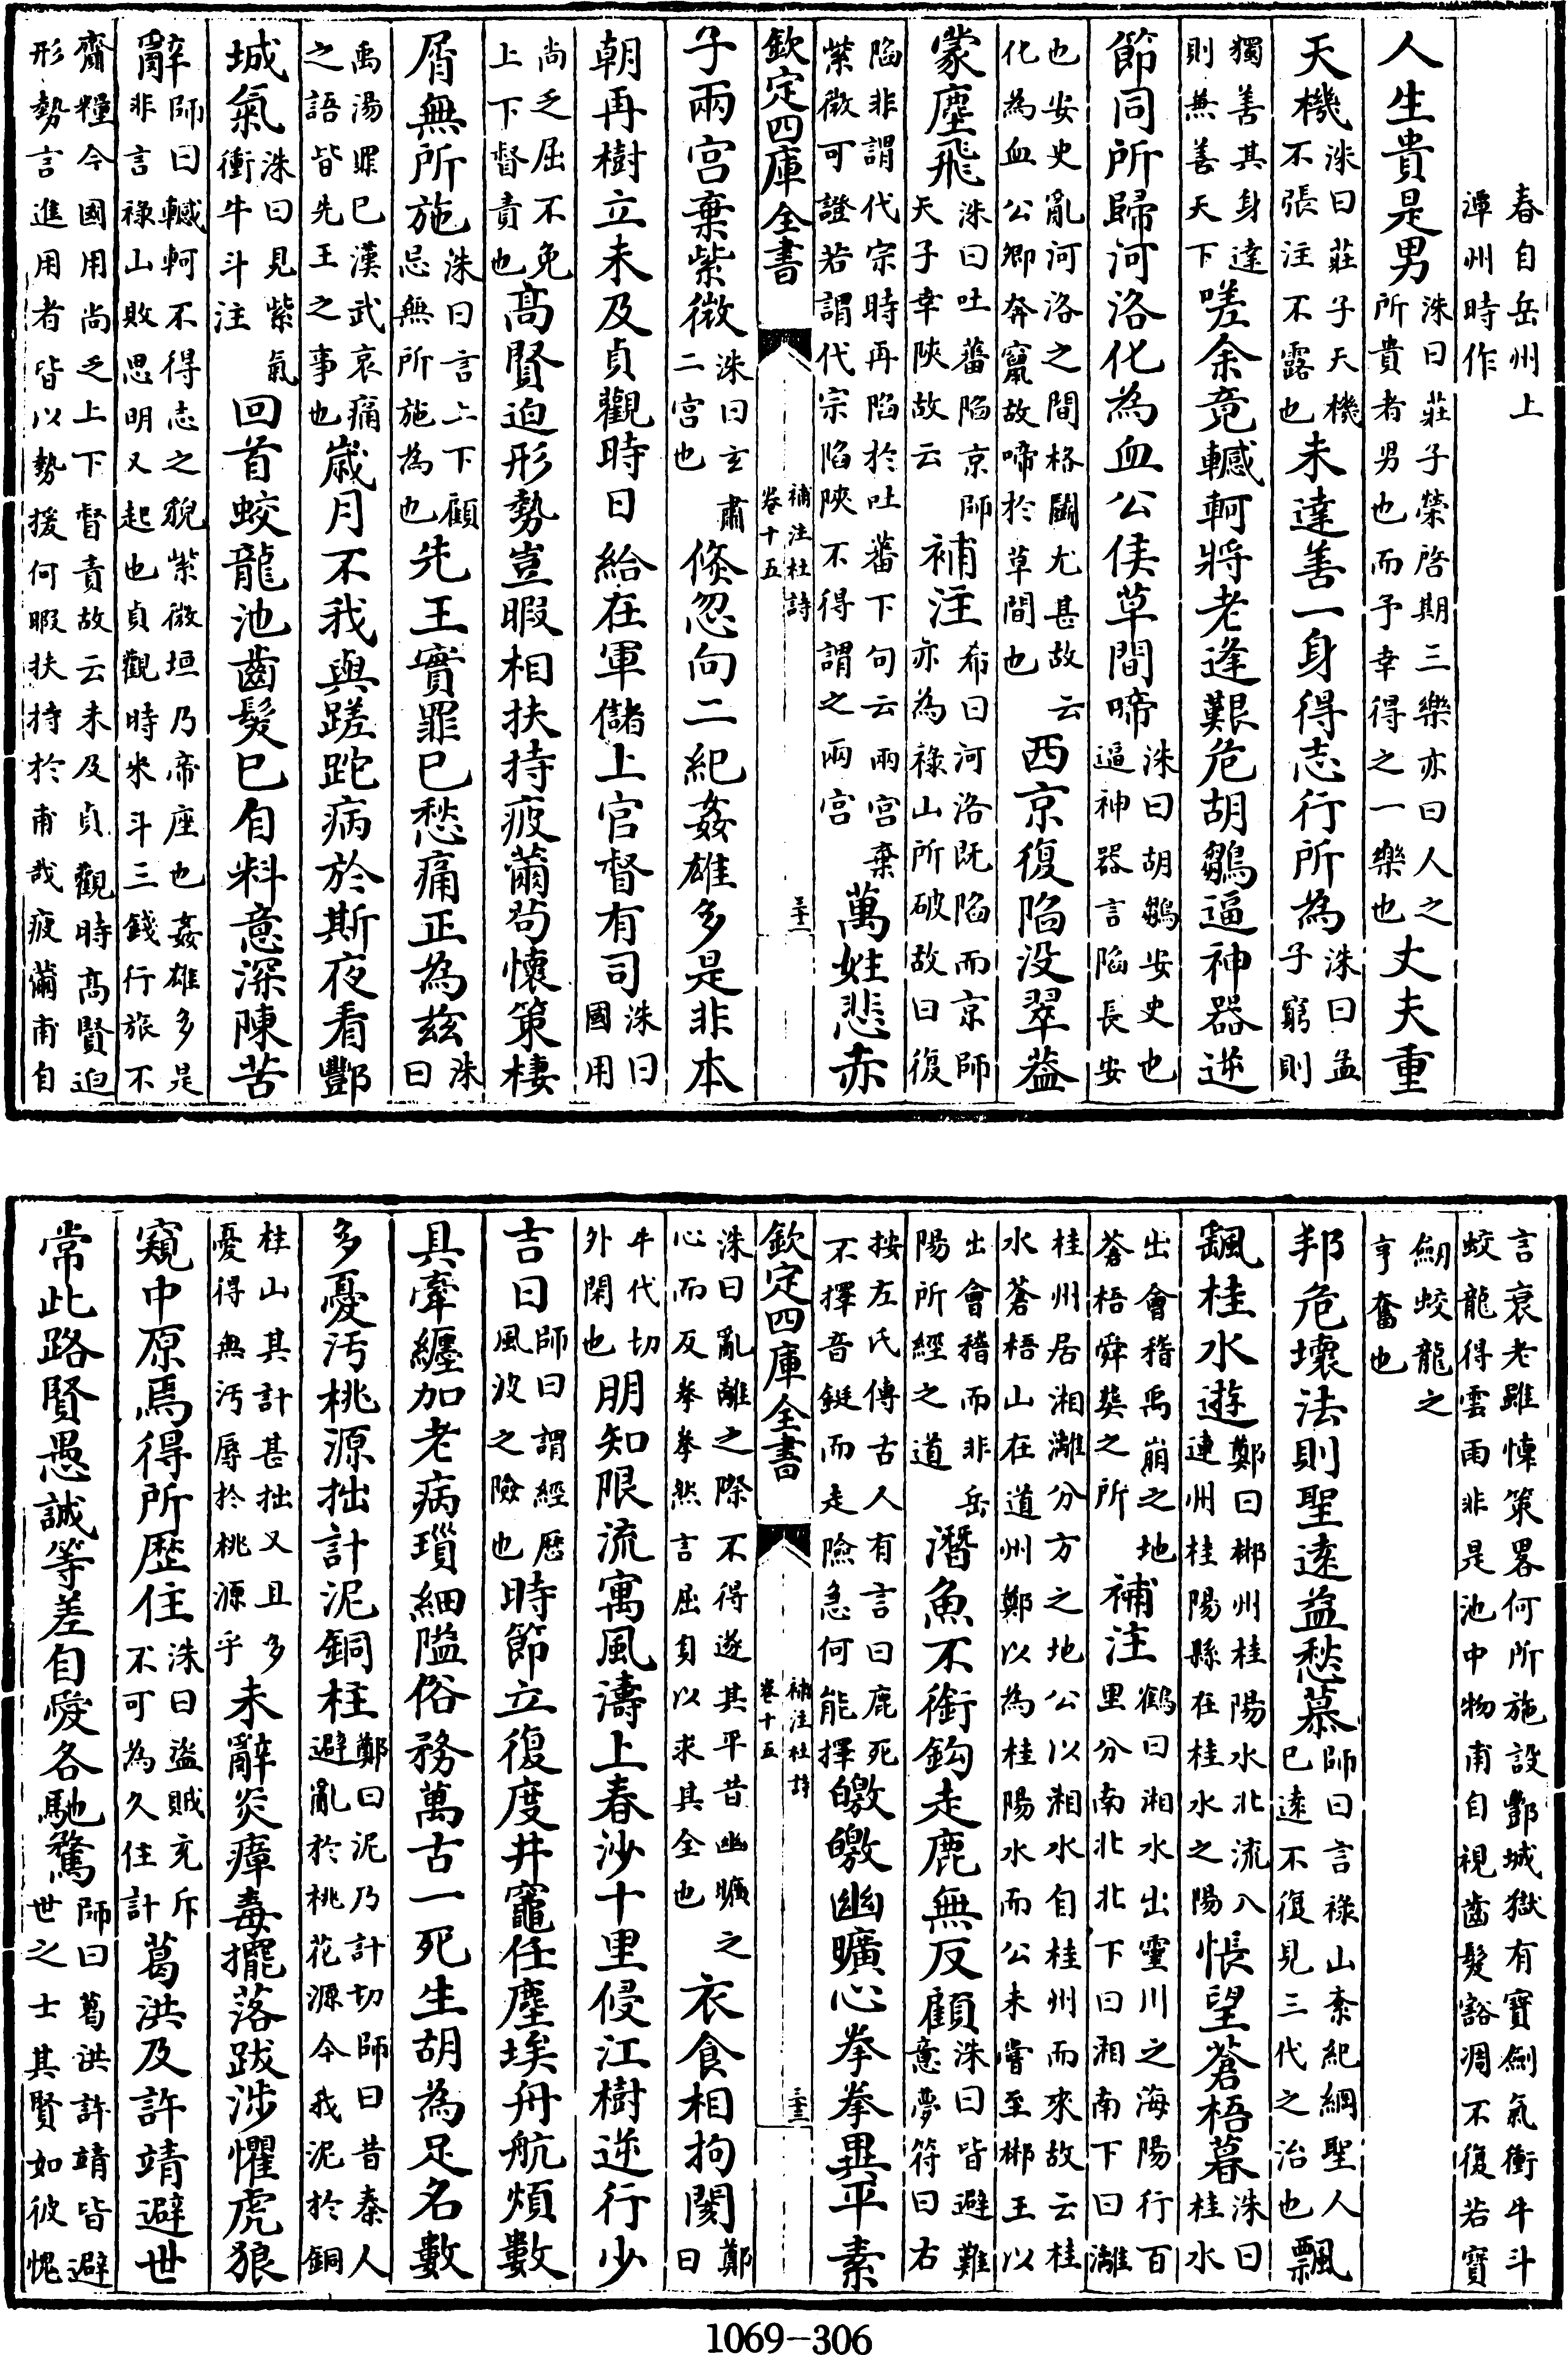 春自岳州上
潭州時作
人生貴是男洙曰莊子榮啓期三樂亦曰人之所貴者男也而予幸得之一樂也丈夫重
天機洙曰莊子天機不張注不露也未達善一身得志行所為洙曰孟子窮則
獨善其身達則兼善天下嗟余竟轗軻將老逢艱危胡雛逼神器逆
節同所歸河洛化為血公侯草間啼洙曰胡雛安史也逼神器言陷長安
也安史亂河洛之間格鬭尤甚故云化為血公卿奔竄故啼於草間也西京復陷没翠葢
蒙塵飛洙曰吐蕃陷京師天子幸陜故云補注希曰河洛既陷而京師亦為祿山所破故曰復
陷非謂代宗時再陷於吐蕃下句云兩宫棄紫微可證若謂代宗陷陜不得謂之兩宫萬姓悲赤
欽定四庫全書 補注杜詩 卷十五 三十二
子兩宫棄紫微洙曰玄肅二宫也倐忽向二紀姦雄多是非本
朝再樹立未及貞觀時日給在軍儲上官督有司洙曰國用
尚乏屈不免上下督責也高賢迫形勢豈暇相扶持疲薾茍懷策棲
屑無所施洙曰言上下顧忌無所施為也先王實罪已愁痛正為兹洙曰
禹湯罪已漢武哀痛之語皆先王之事也歲月不我與蹉跎病於斯夜看酆
城氣洙曰見紫氣衝牛斗注回首蛟龍池齒髮已自料意深陳苦
辭師曰轗軻不得志之貌紫微垣乃帝座也姦雄多是非言祿山敗思明又起也貞觀時米斗三錢行旅不
齎糧今國用尚乏上下督責故云未及貞觀時高賢迫形勢言進用者皆以勢援何暇扶持於甫哉疲薾甫自
言衰老雖懐策畧何所施設酆城獄有寶劍氣衝牛斗蛟龍得雲雨非是池中物甫自視齒髮豁凋不復若寶
劍蛟龍之亨奮也
邦危壞法則聖逺益愁慕師曰言祿山紊紀綱聖人已逺不復見三代之治也飄
飖桂水遊鄭曰郴州桂陽水北流入連州桂陽縣在桂水之陽悵望蒼梧暮洙曰桂水
出會稽禹崩之地蒼梧舜葬之所補注鶴曰湘水出靈川之海陽行百里分南北北下曰湘南下曰灕
桂州居湘灕分方之地公以湘水自桂州而來故云桂水蒼梧山在道州鄭以為桂陽水而公未嘗至郴王以
出會稽而非岳陽所經之道潛魚不銜鈎走鹿無反顧洙曰皆避難意夢符曰右
按左氏傳古人有言曰鹿死不擇音鋌而走險急何能擇皦皦幽曠心拳拳異平素
欽定四庫全書 補注杜詩 卷十五 三十三
洙曰亂離之際不得遂其平昔幽曠之心而反拳拳然言屈身以求其全也衣食相拘閡鄭曰
牛代切外閑也朋知限流寓風濤上春沙十里侵江樹逆行少
吉日師曰謂經歴風波之險也時節立復度井竈任塵埃舟航煩數
具牽纒加老病瑣細隘俗務萬古一死生胡為足名數
多憂汚桃源拙計泥銅柱鄭曰泥乃計切師曰昔秦人避亂於桃花源今我泥於銅
柱山其計甚拙又且多憂得無汚辱於桃源乎未辭炎瘴毒擺落跋涉懼虎狼
窺中原焉得所歴住洙曰盜賊充斥不可為久住計葛洪及許靖避世
常此路賢愚誠等差自愛各馳騖師曰葛洪許靖皆避世之士其賢如彼愧
1069-306